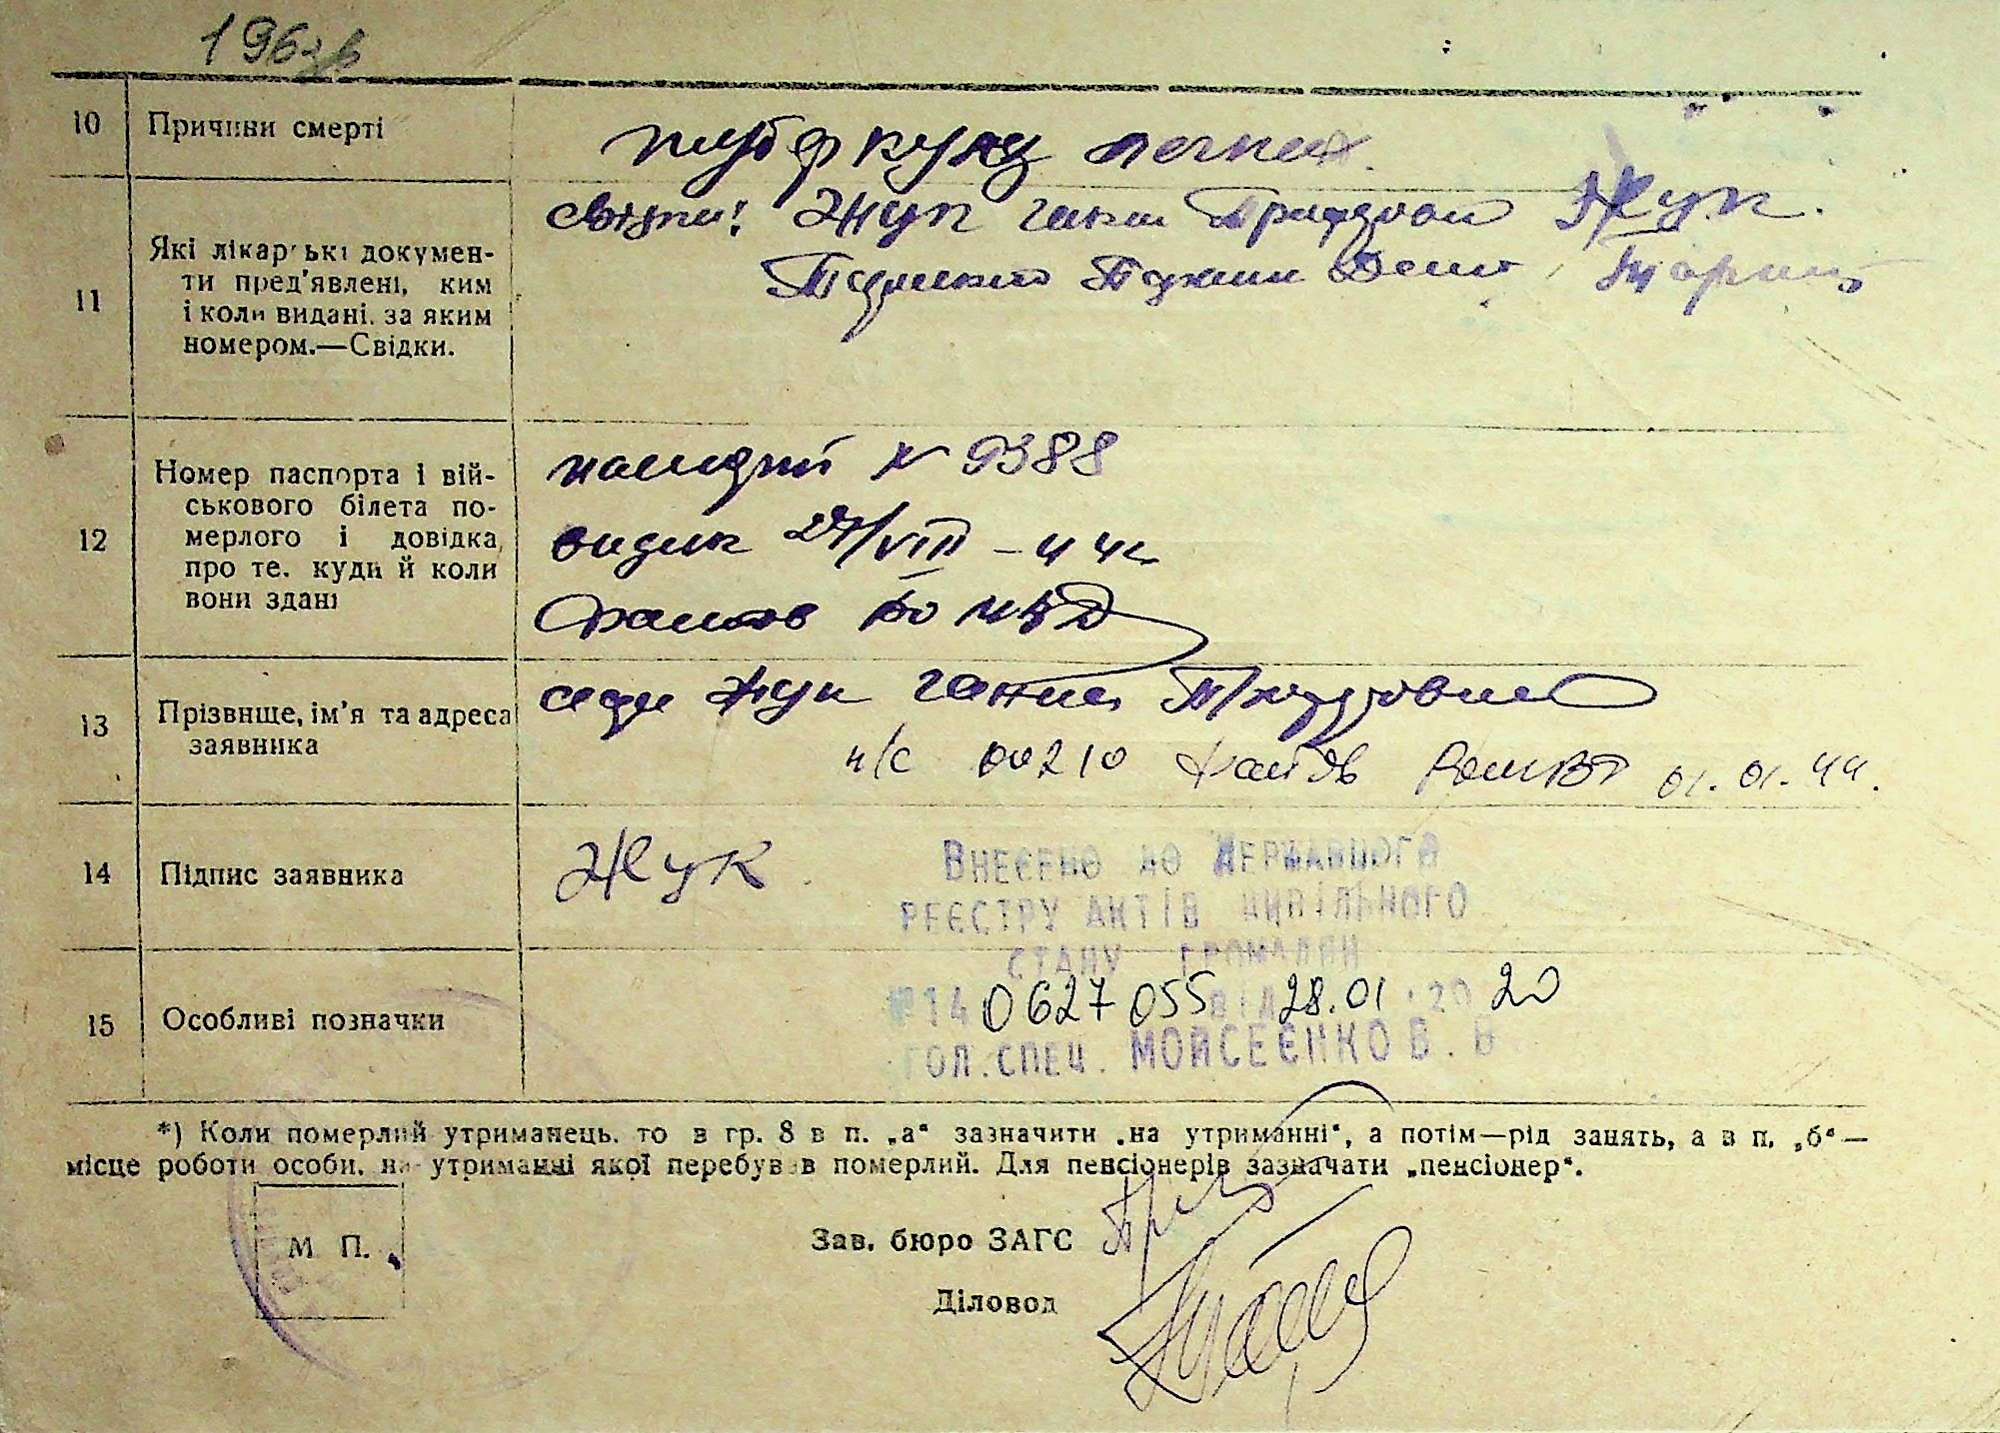 196зв
10 Причини смерті
туберкульоз легких
11 Які лікарські докумен-
ти пред'явлені, ким
і коли видані, за яким
номером.—Свідки.
свідки: Жук Ганни Жук.
12 Номер паспорта і вій-
ськового білета по-
мерлого і довідка,
про те, куди й коли
вони здані
№ 9388
видан 27/VIII - 44
НКВД
13 Прізвище, ім'я та адреса
заявника
Жук Ганна
н/с 00210 01.01.44.
14 Підпис заявника
Жук
Внесено до Державного
реєстру актів цивільного
стану громадян
15 Особливі позначки
№14 0627055 від 28.01.2020
гол.спец. Мойсеєнко В. В
*) Коли померлий утриманець, то в гр. 8 в п. „а“ зазначити „на утриманні“, а потім—рід занять, а в п. „б“—
місце роботи особи, на утриманні якої перебував померлий. Для пенсіонерів зазначати „пенсіонер“.
М П.
Зав. бюро ЗАГС
Діловод